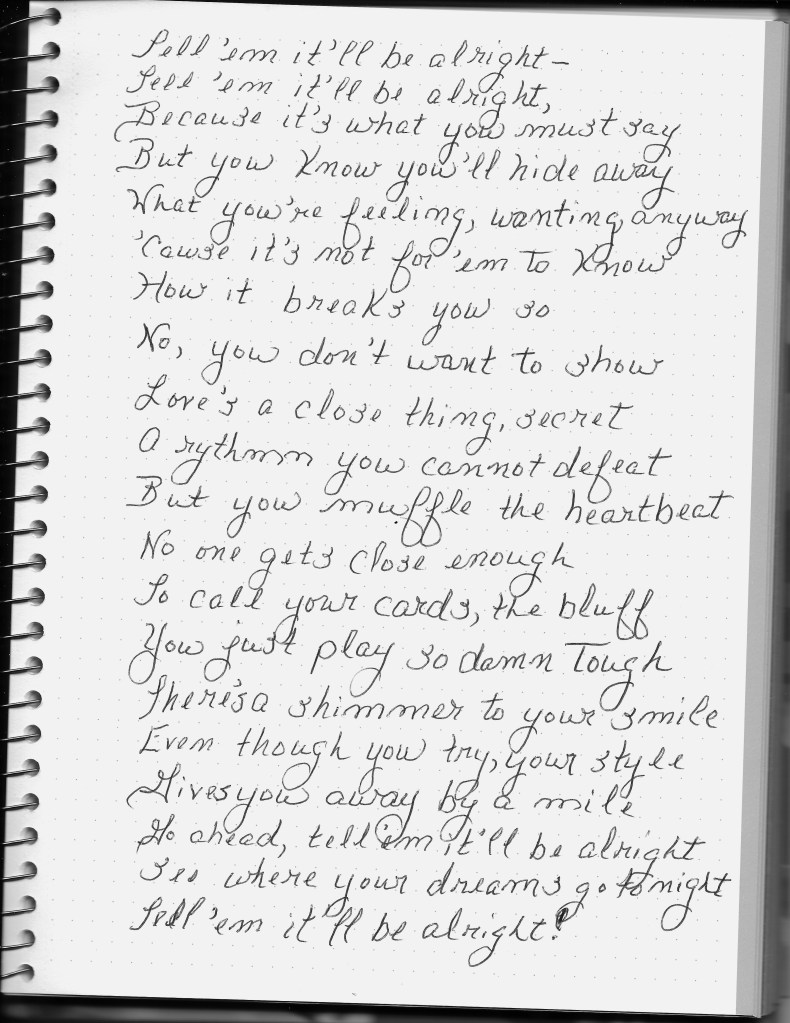 Tell 'em it'll be alright—
Tell 'em it'll be alright,
Because it's what you must say
But you know you'll hide away
What you're feeling, wanting, anyway
'Cause it's not for 'em to know
How it breaks you so
No, you don't want to show
Love's a close thing, secret
A rythmn you cannot defeat
But you muffle the heartbeat
No one gets close enough
To call your cards, the bluff
You just play so damn tough
There's a shimmer to your smile
Even though you try, your style
Gives you away by a mile
Go ahead, tell 'em it'll be alright
See where your dreams go tonight
Tell 'em it'll be alright!